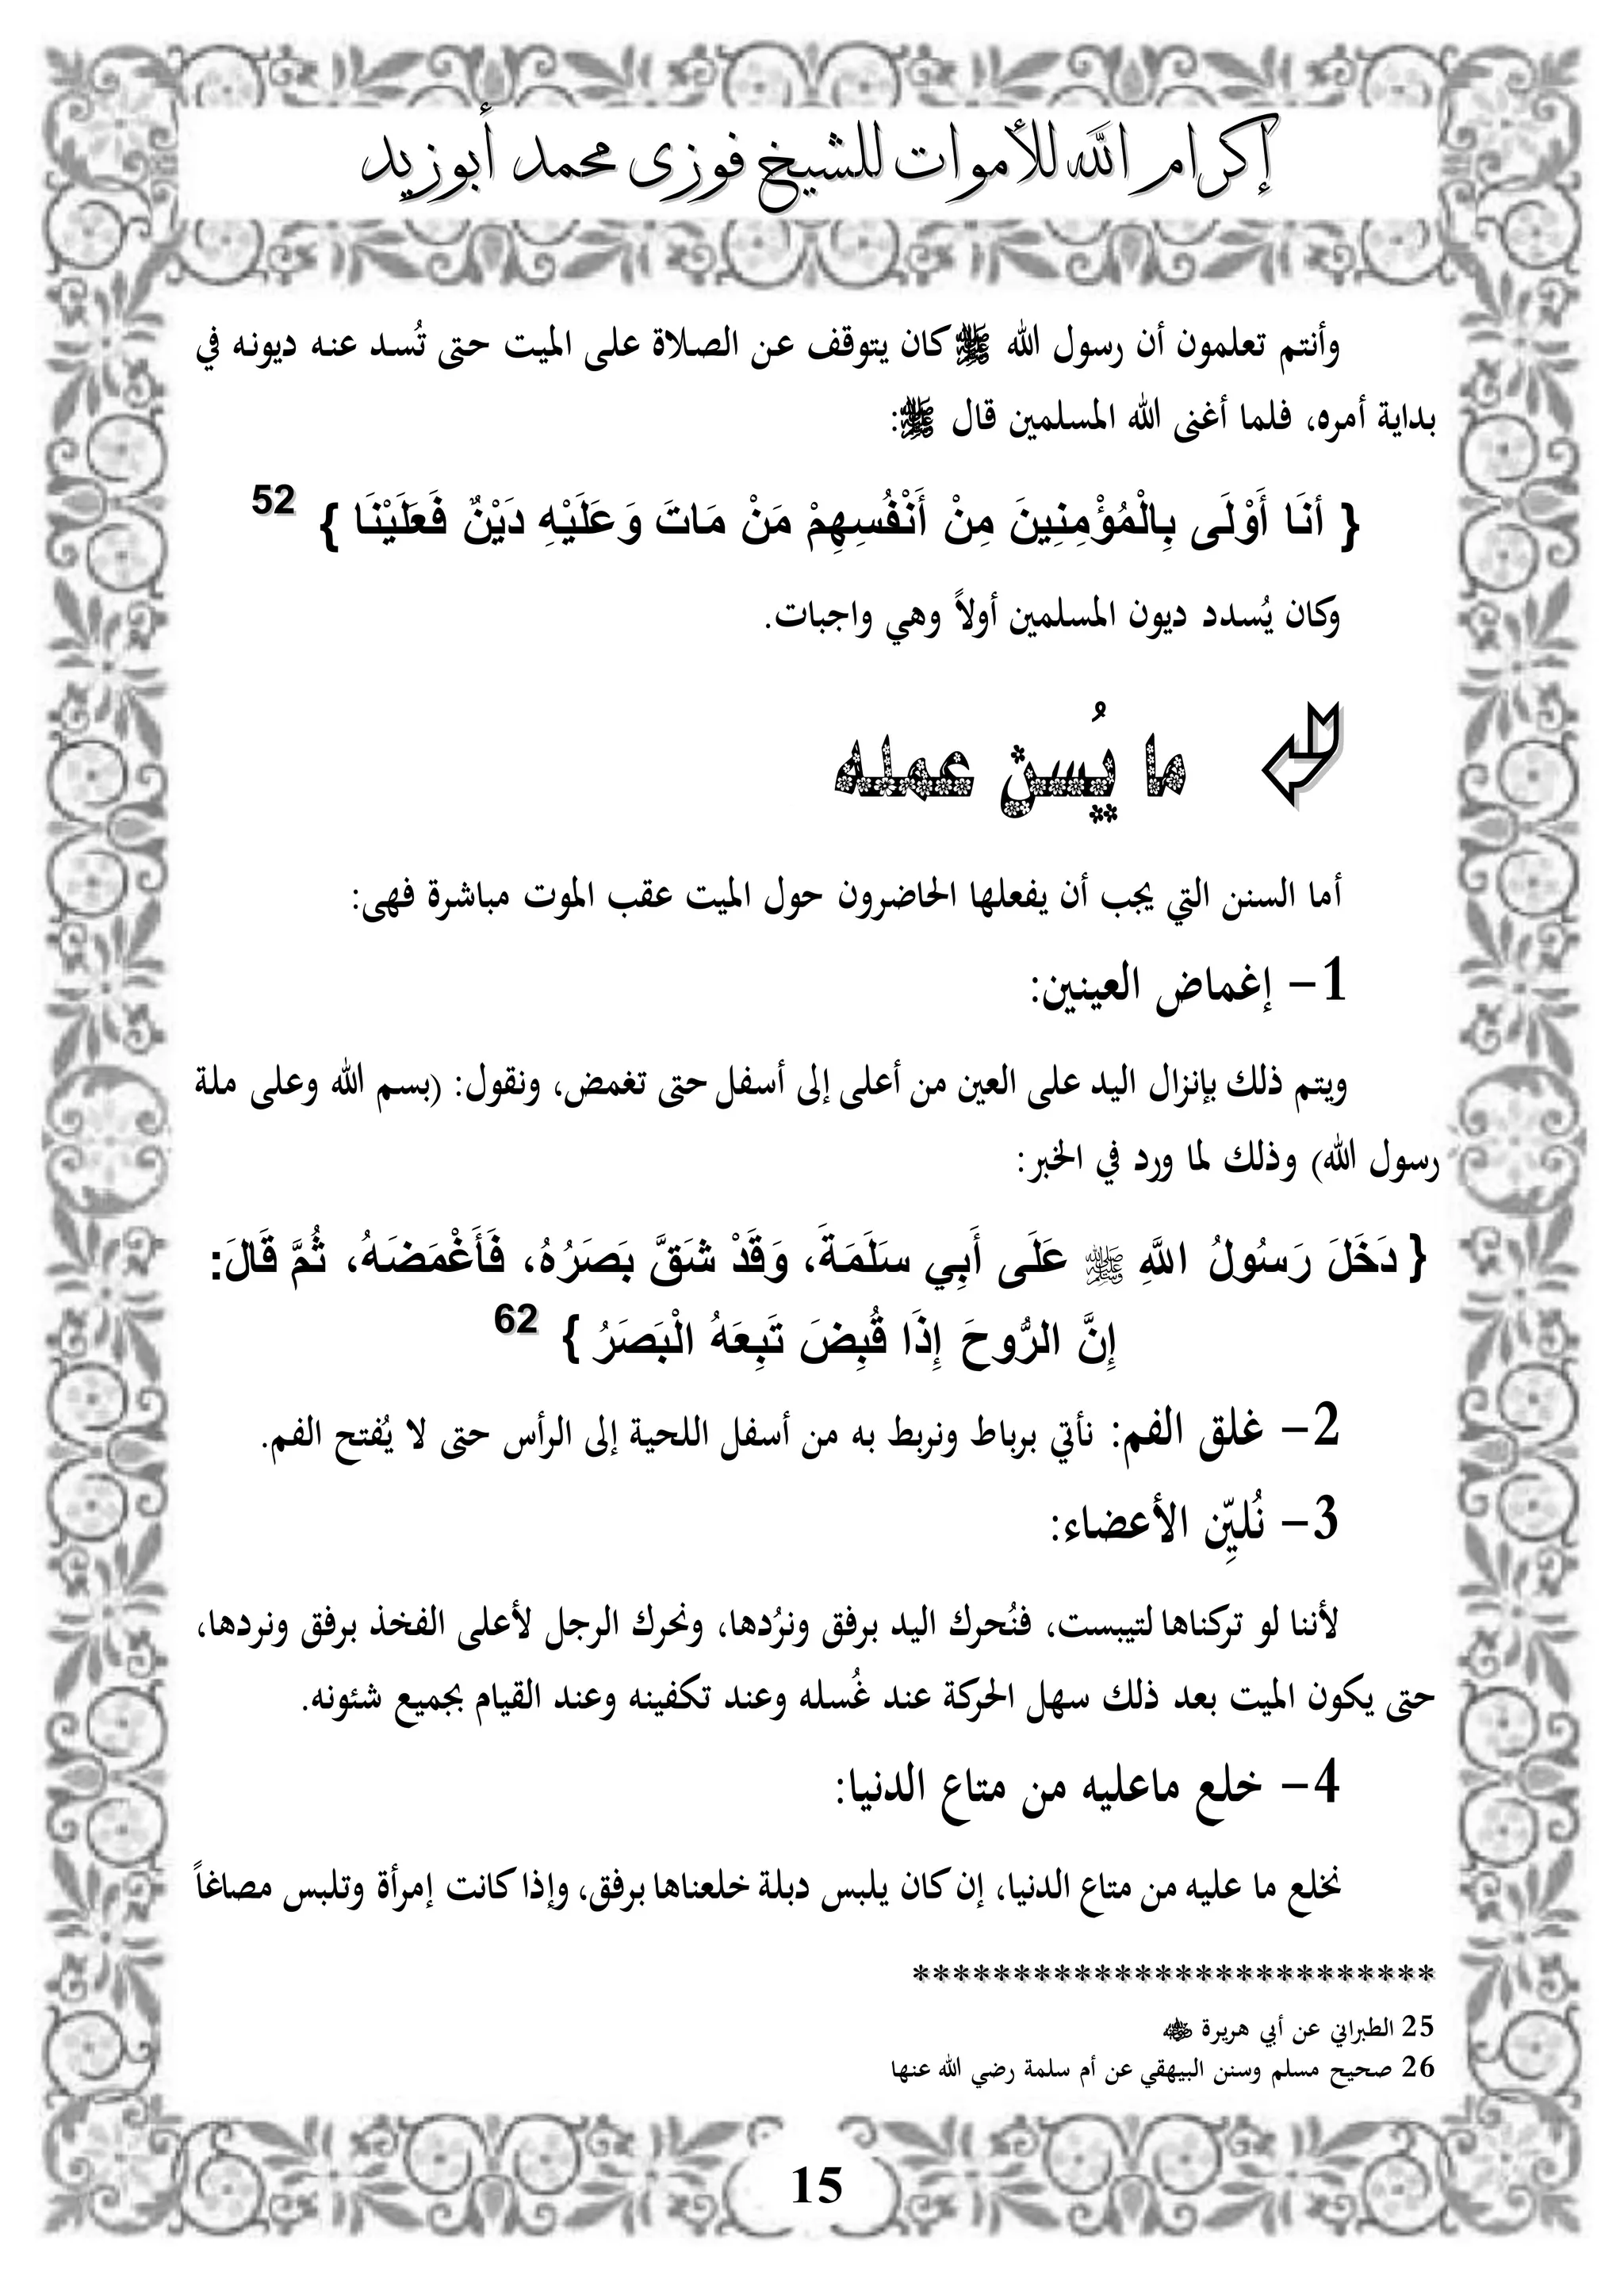 إكرام الله للأموات للشيخ فوزى محمد أبوزيد
وأنتم تعلمون أن رسول الله ﷺ كان يتوقف عن الصلاة على الميت حتى تُسد عنه ديونه في
بداية أمره، فلما أغنى الله المسلمين قال ﷺ:
{ أنَا أَوْلَى بِالْمُؤْمِنِينَ مِنْ أَنْفُسِهِمْ مَنْ مَاتَ وَعَلَيْهِ دَيْنٌ فَعَلَيْنَا } 52
وكان يُسدد ديون المسلمين أولاً وهي واجبات.
ما يُسن عمله
أما السنن التي يجب أن يفعلها الحاضرون حول الميت عقب الموت مباشرة فهى:
1- إغماض العينين:
ويتم ذلك بإنزال اليد على العين من أعلى إلى أسفل حتى تغمض، ونقول: (بسم الله وعلى ملة
رسول الله) وذلك لما ورد في الخبر:
{ دَخَلَ رَسُولُ اللَّهِ ﷺ عَلَى أَبِي سَلَمَةَ، وَقَدْ شَقَّ بَصَرُهُ، فَأَغْمَضَهُ، ثُمَّ قَالَ:
إِنَّ الرُّوحَ إِذَا قُبِضَ تَبِعَهُ الْبَصَرُ } 62
2- غلق الفم: نأتي برباط ونربط به من أسفل اللحية إلى الرأس حتى لا يُفتح الفم.
3- نُليِّن الأعضاء:
لأننا لو تركناها لتيبست، فنُحرك اليد برفق ونرُدها، ونحرك الرجل لأعلى الفخذ برفق ونردها،
حتى يكون الميت بعد ذلك سهل الحركة عند غُسله وعند تكفينه وعند القيام بجميع شئونه.
4- خلع ماعليه من متاع الدنيا:
نخلع ما عليه من متاع الدنيا، إن كان يلبس دبلة خلعناها برفق، وإذا كانت إمرأة وتلبس مصاغاً
**************************
25 الطبراني عن أبي هريرة ﵁
26 صحيح مسلم وسنن البيهقي عن أم سلمة رضي الله عنها
15